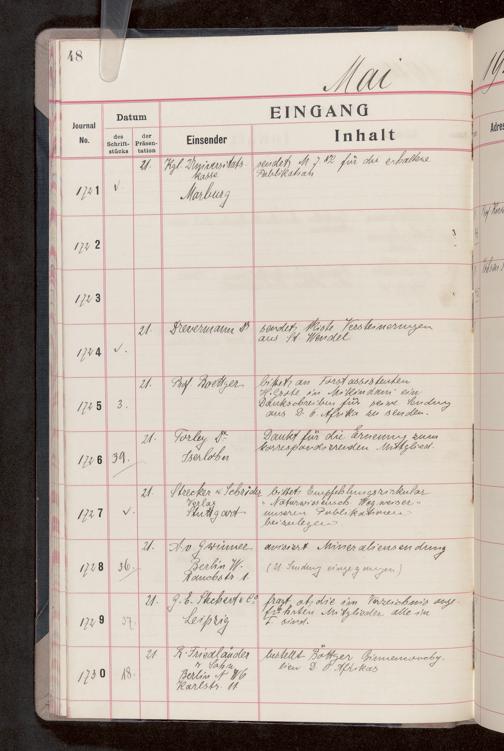 48
Mai
19
Journal No.
Datum
des Schrift-stücks
der Präsen-tation
EINGANG
Einsender
Inhalt
Adres
1721
21.
Kgl. Universitäts-
kasse
Marburg
sendet M. 7. für die erhaltene
Publikation
1722
1723
1724
21.
Drevermann Dr
sendet Kiste Versteinerungen
aus St. Wendel
1725
3.
21.
Prof. Boettger
bittet an Forstassistenten
H. Grote in Mikindani ein
Dankschreiben für seine Sendung
aus D. O. Afrika zu senden.
1726
39.
21.
Torley Dr.
Iserlohn
Dankt für die Ernennung zum
korrespondierenden Mitglied.
1727
21.
Strecker u. Schröder
Verlag
Stuttgart
bittet Empfehlungszirkular
unseren Publikationen
beizulegen
1728
36.
21.
A. v. Gwinner
Berlin W.
Rauchstr. 1
avisiert Mineraliensendung
(21. Sendung eingegangen)
1729
37.
21.
G. E. Stechert & Co
Leipzig
fragt ob die im Verzeichnis aufge-
führten Mitglieder alle in
sind.
1730
18.
21.
R. Friedländer
u. Sohn
Berlin N. W. 6
Karlstr. 11
bestellt Böttger
D. O. Afrikas